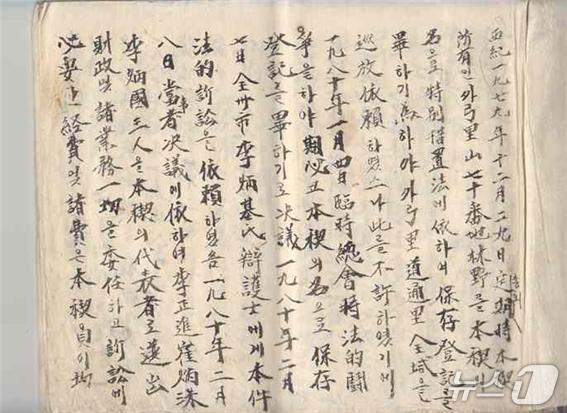 西紀一九七九年十二月二九日 定期時 本契
所有인 外弓里 山七十番地 林野를 本契
名으로 特別措置法에 依하여 保存登記를
畢하기 爲하야 外弓里 道通里 全域을
巡放依賴하였으나 此를 不許하였기에
一九八十年 一月 四日 臨時總會時 法的鬪
爭을 하야 期必코 本契의 名으로 保存
登記를 畢하기로 決議 一九八十年 二月
七日 全州市 李炳基氏 辯護士에게 本件
法的 訴訟을 依賴하였음 一九八十年 二月
八日 當者 決議에 依하여 李正進 崔炳洙
李炳國 三人을 本契의 代表者로 選出
財政 및 諸業務 一切을 委任하고 訴訟에
必要한 經費 및 諸費은 本契員이
뉴스1